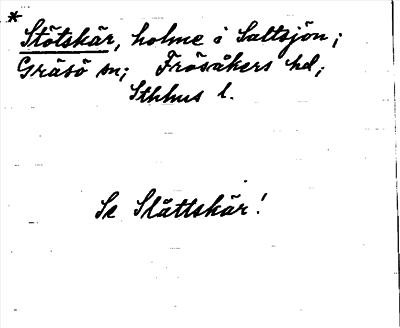 *
Stötskär, holme i Saltsjön;
Gräsö sn; Frösåkers hd;
Sthlms l.
Se Slåttskär!